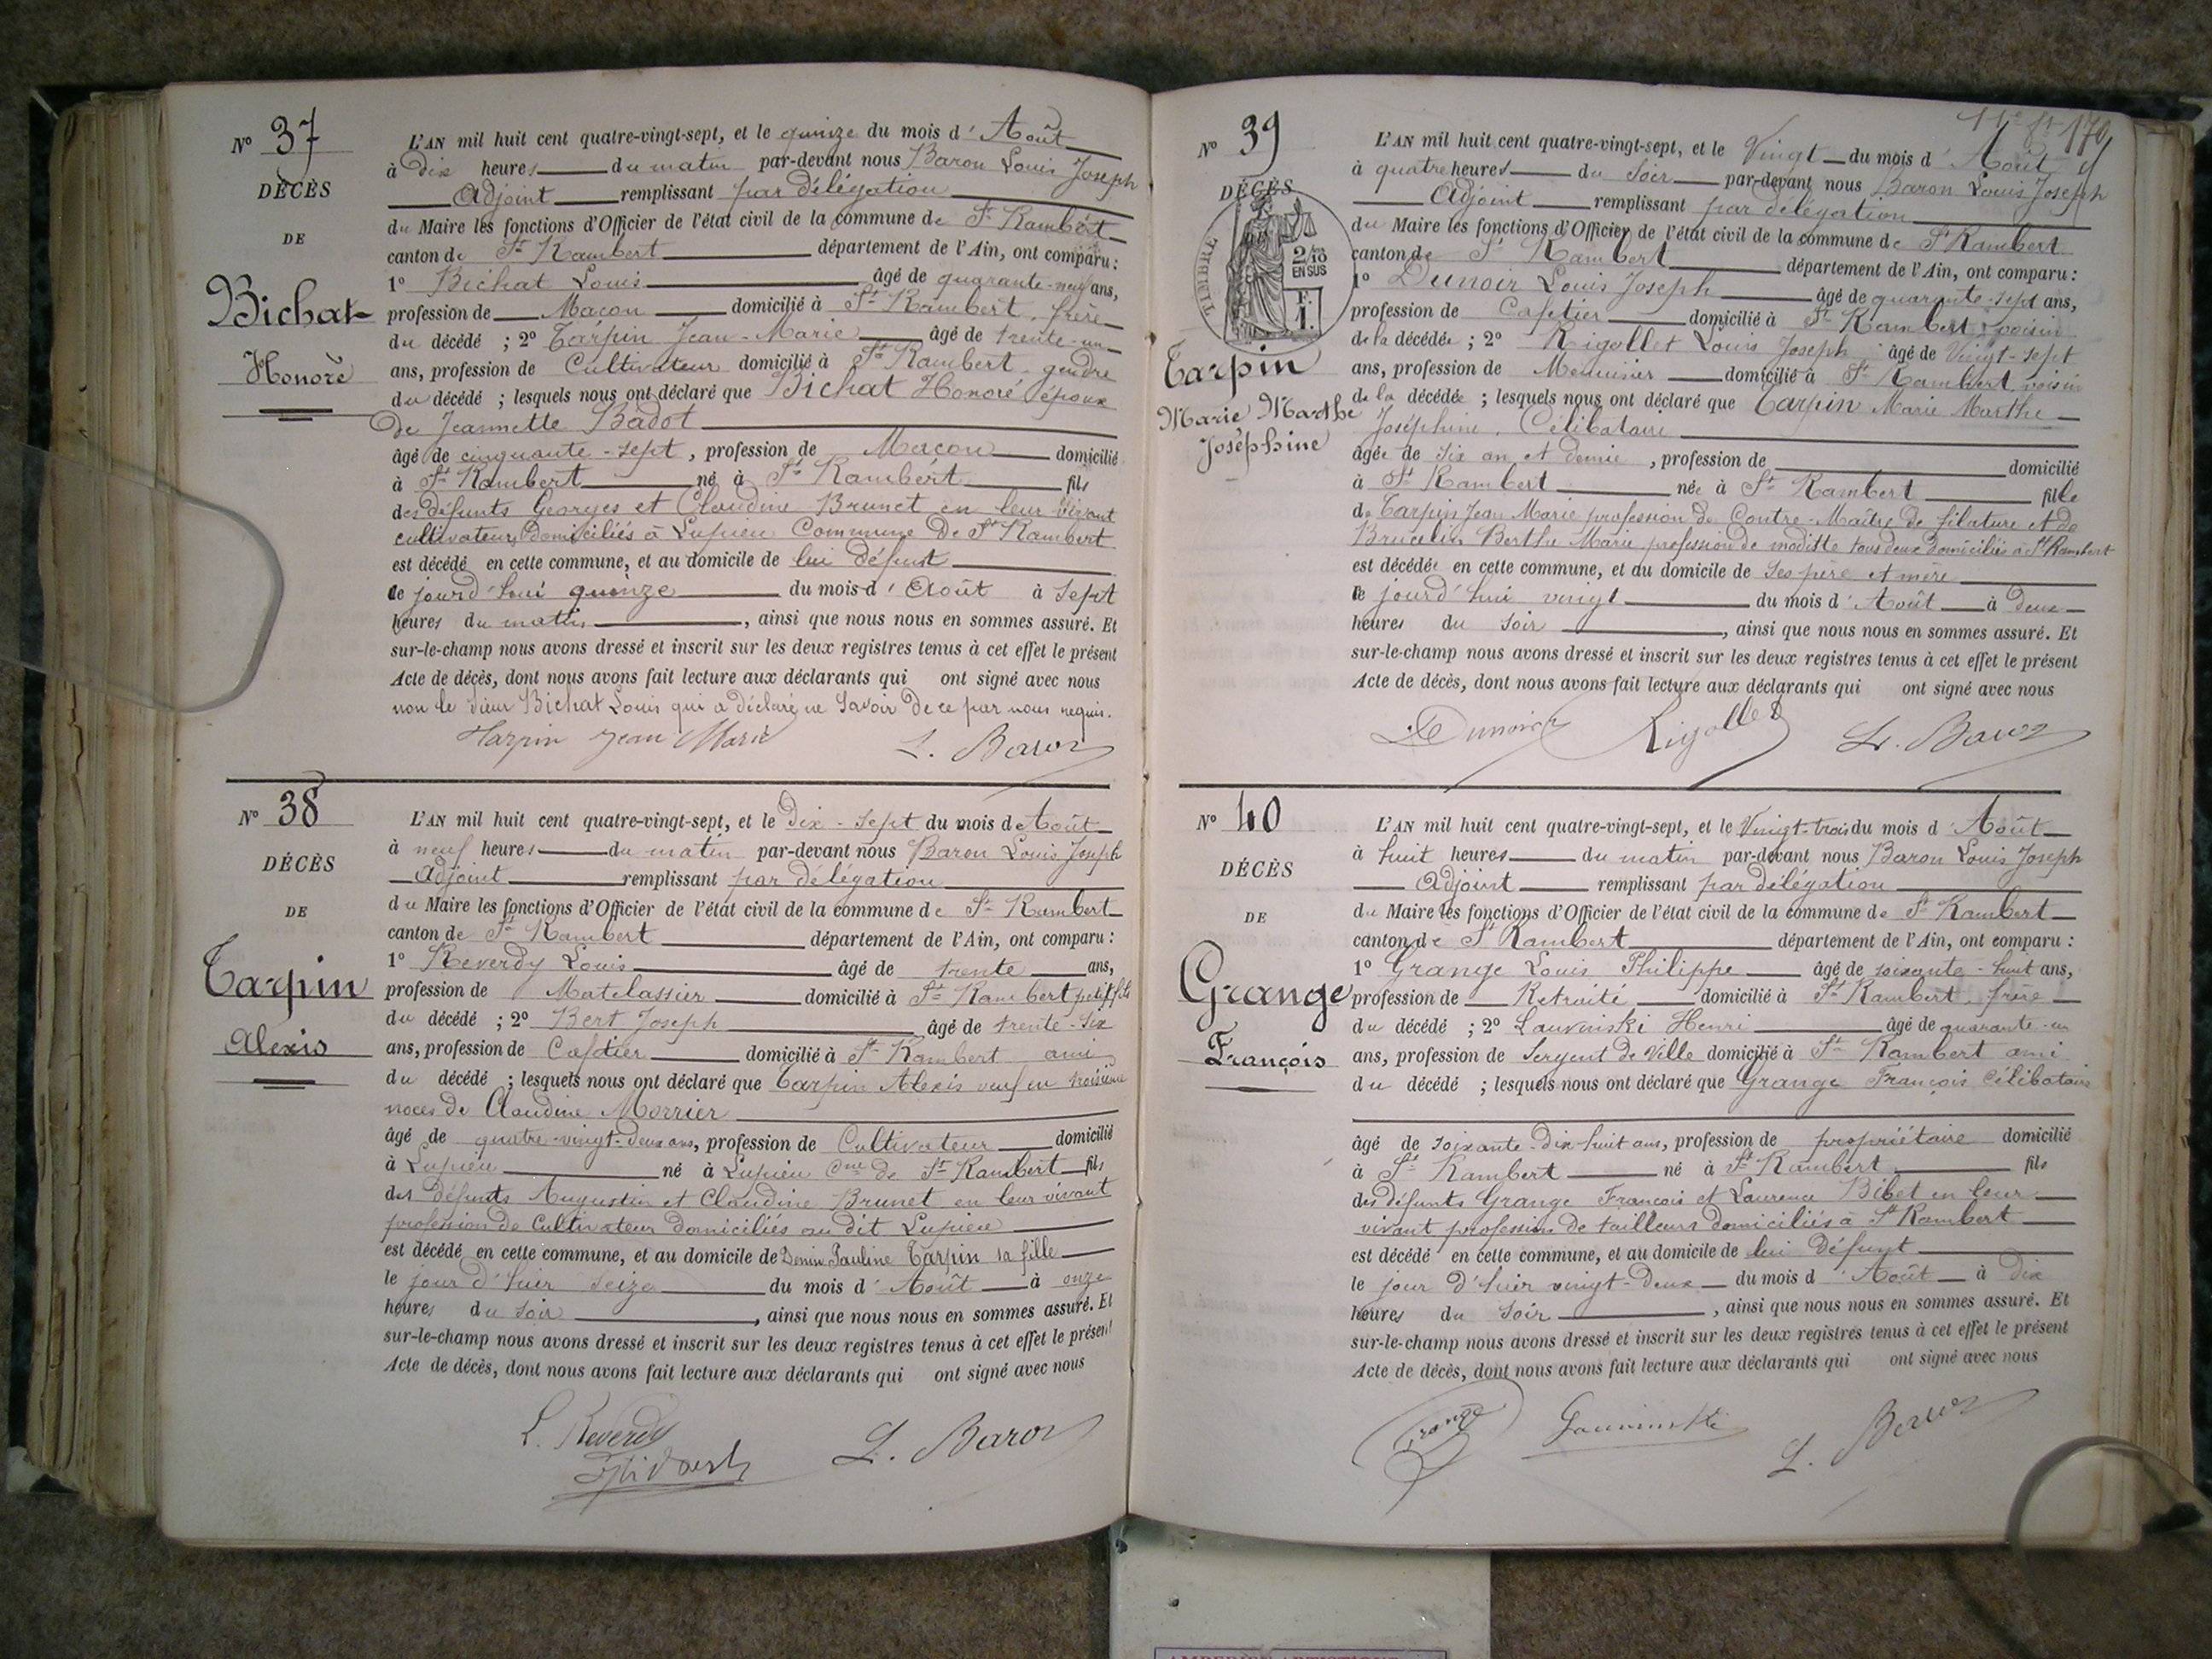 N° 37
DÉCÈS
DE
Bichat
Honoré
L'AN mil huit cent quatre-vingt-sept, et le quinze du mois d'Août
à dix heures du matin par-devant nous Baron Louis Joseph
Adjoint remplissant par délégation
du Maire les fonctions d'Officier de l'état civil de la commune de St Rambert
canton de St Rambert département de l'Ain, ont comparu :
1° Bichat Louis âgé de quarante-neuf ans,
profession de Maçon domicilié à St Rambert, frère
du décédé ; 2° Tarpin Jean-Marie âgé de trente-un
ans, profession de Cultivateur domicilié à St Rambert gendre
du décédé ; lesquels nous ont déclaré que Bichat Honoré époux
de Jeannette Badot
âgé de cinquante-sept, profession de Maçon domicilié
à St Rambert né à St Rambert fils
des défunts Georges et Claudine Brunet en leur vivant
cultivateurs domiciliés à Lupieu Commune de St Rambert
est décédé en cette commune, et au domicile de lui défunt
le jourd'hui quinze du mois d'Août à sept
heures du matin, ainsi que nous nous en sommes assuré. Et
sur-le-champ nous avons dressé et inscrit sur les deux registres tenus à cet effet le présent
Acte de décès, dont nous avons fait lecture aux déclarants qui ont signé avec nous
non le sieur Bichat Louis qui a déclaré ne savoir de ce par nous requis.
Tarpin Jean Marie L. Baron
N° 38
DÉCÈS
DE
Tarpin
Alexis
L'AN mil huit cent quatre-vingt-sept, et le dix-sept du mois d'Août
à neuf heures du matin par-devant nous Baron Louis Joseph
Adjoint remplissant par délégation
du Maire les fonctions d'Officier de l'état civil de la commune de St Rambert
canton de St Rambert département de l'Ain, ont comparu :
1° Reverdy Louis âgé de trente ans,
profession de Matelassier domicilié à St Rambert petit fils
du décédé ; 2° Bert Joseph âgé de trente-six
ans, profession de Cafetier domicilié à St Rambert ami
du décédé ; lesquels nous ont déclaré que Tarpin Alexis veuf en troisième
noces de Claudine Morrier
âgé de quatre-vingt-deux ans, profession de Cultivateur domicilié
à Lupieu né à Lupieu Cne de St Rambert fils
des défunts Augustin et Claudine Brunet en leur vivant
profession de Cultivateur domiciliés au dit Lupieu
est décédé en cette commune, et au domicile de Pauline Tarpin sa fille
le jour d'hier seize du mois d'Août à onze
heures du soir, ainsi que nous nous en sommes assuré. Et
sur-le-champ nous avons dressé et inscrit sur les deux registres tenus à cet effet le présent
Acte de décès, dont nous avons fait lecture aux déclarants qui ont signé avec nous
L. Reverdy
L. Baron
170
N° 39
DÉCÈS
TIMBRE
2/10
EN SUS
F.
1.
Tarpin
Marie Marthe
Joséphine
L'AN mil huit cent quatre-vingt-sept, et le Vingt du mois d'Août
à quatre heures du soir par-devant nous Baron Louis Joseph
Adjoint remplissant par délégation
du Maire les fonctions d'Officier de l'état civil de la commune de St Rambert
canton de St Rambert département de l'Ain, ont comparu :
1° Dunoir Louis Joseph âgé de quarante-sept ans,
profession de Cafetier domicilié à St Rambert voisin
de la décédée ; 2° Rigollet Louis Joseph âgé de Vingt-sept
ans, profession de Menuisier domicilié à St Rambert voisin
de la décédée ; lesquels nous ont déclaré que Tarpin Marie Marthe
Joséphine. Célibataire
âgée de six an et demie, profession de domicilié
à St Rambert née à St Rambert fille
de Tarpin Jean Marie profession de Contre-Maître de filature et de
Berthe Marie profession de modiste tous deux domiciliés à St Rambert
est décédée en cette commune, et au domicile de ses père et mère
le jourd'hui vingt du mois d'Août à deux
heures du soir, ainsi que nous nous en sommes assuré. Et
sur-le-champ nous avons dressé et inscrit sur les deux registres tenus à cet effet le présent
Acte de décès, dont nous avons fait lecture aux déclarants qui ont signé avec nous
Dunoir Rigollet L. Baron
N° 40
DÉCÈS
DE
Grange
François
L'AN mil huit cent quatre-vingt-sept, et le Vingt-trois du mois d'Août
à huit heures du matin par-devant nous Baron Louis Joseph
Adjoint remplissant par délégation
du Maire les fonctions d'Officier de l'état civil de la commune de St Rambert
canton de St Rambert département de l'Ain, ont comparu :
1° Grange Louis Philippe âgé de soixante-huit ans,
profession de Retraité domicilié à St Rambert, frère
du décédé ; 2° Lauvinski Henri âgé de quarante-un
ans, profession de Sergent de Ville domicilié à St Rambert ami
du décédé ; lesquels nous ont déclaré que Grange François Célibataire
âgé de soixante-dix-huit ans, profession de propriétaire domicilié
à St Rambert né à St Rambert fils
des défunts Grange François et Laurence Bibet en leur
vivant profession de tailleurs domiciliés à St Rambert
est décédé en cette commune, et au domicile de lui Défunt
le jour d'hier vingt-deux du mois d'Août à dix
heures du soir, ainsi que nous nous en sommes assuré. Et
sur-le-champ nous avons dressé et inscrit sur les deux registres tenus à cet effet le présent
Acte de décès, dont nous avons fait lecture aux déclarants qui ont signé avec nous
Grange L. Baron